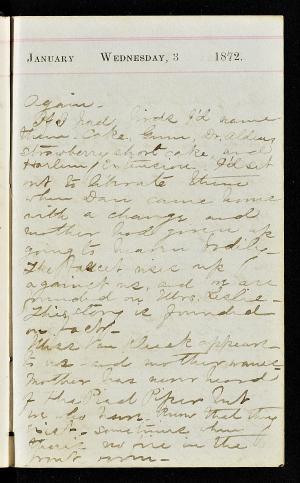 January Wednesday, 3 1872.
Again -
The had birds I'd name
them Cake, Gum, Dr. Aldens,
Strawberry short cake, and
Harlem Extension, I'd set
out to liberate them
when Dan came home
with a change and
mother had given up
going to
The rises up
against us, and we are
founded on Mrs. Leslie -
This story is founded
on fact -
Miss Van appears
to us and mother
Mother has never heard
of the Pied Piper but
we who have know that they
exist - sometimes when
there's no fire in the
front room -